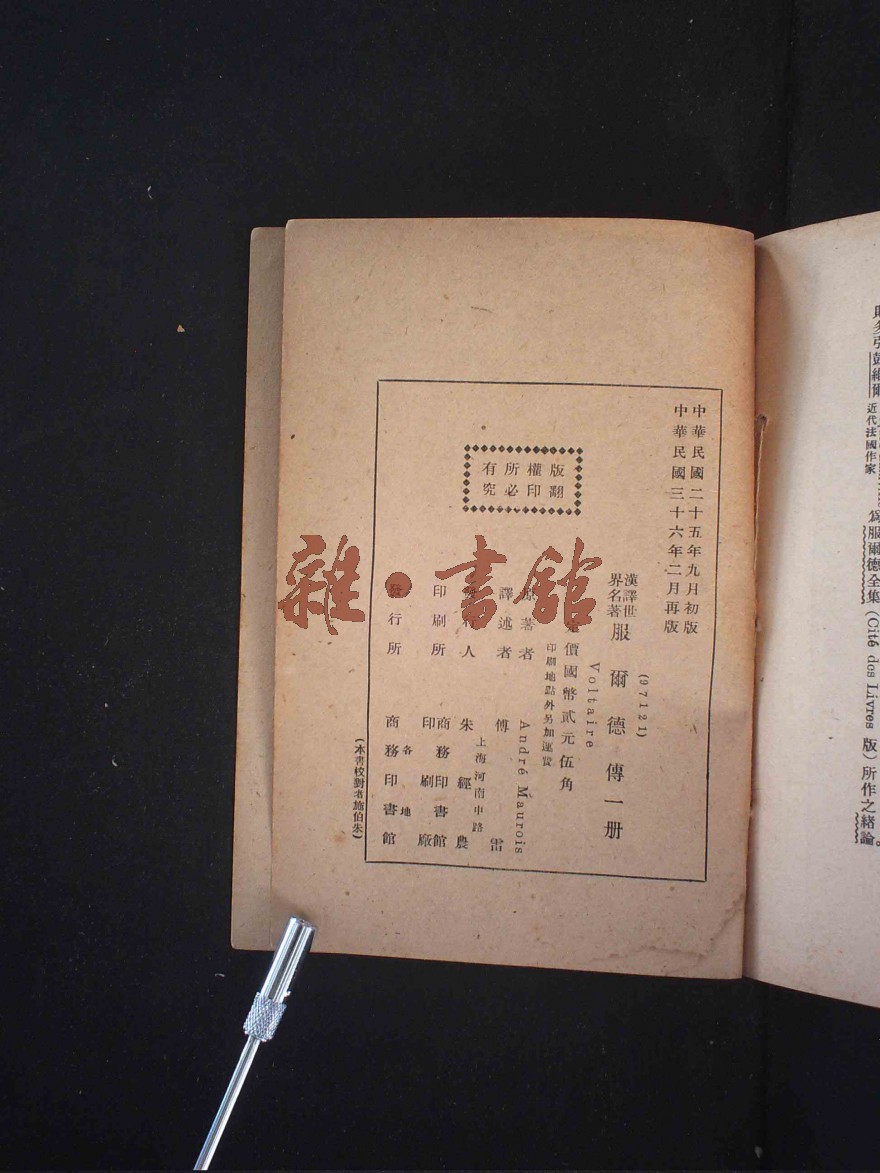 則多引莫維爾近代法國作家為服爾德全集(Cité des Livres 版)所作之緒論。
中華民國二十五年九月初版
中華民國三十六年二月再版
(97121)
漢譯世界名著 服爾德傳一册
Voltaire
定價國幣貳元伍角
印刷地點外另加運費
原著者 André Maurois
譯述者 傅雷
上海河南中路
發行人 朱經農
印刷所 商務印書館印刷廠
各地
發行所 商務印書館
(本書校對者施伯朱)
版權所有
翻印必究
雜·書館